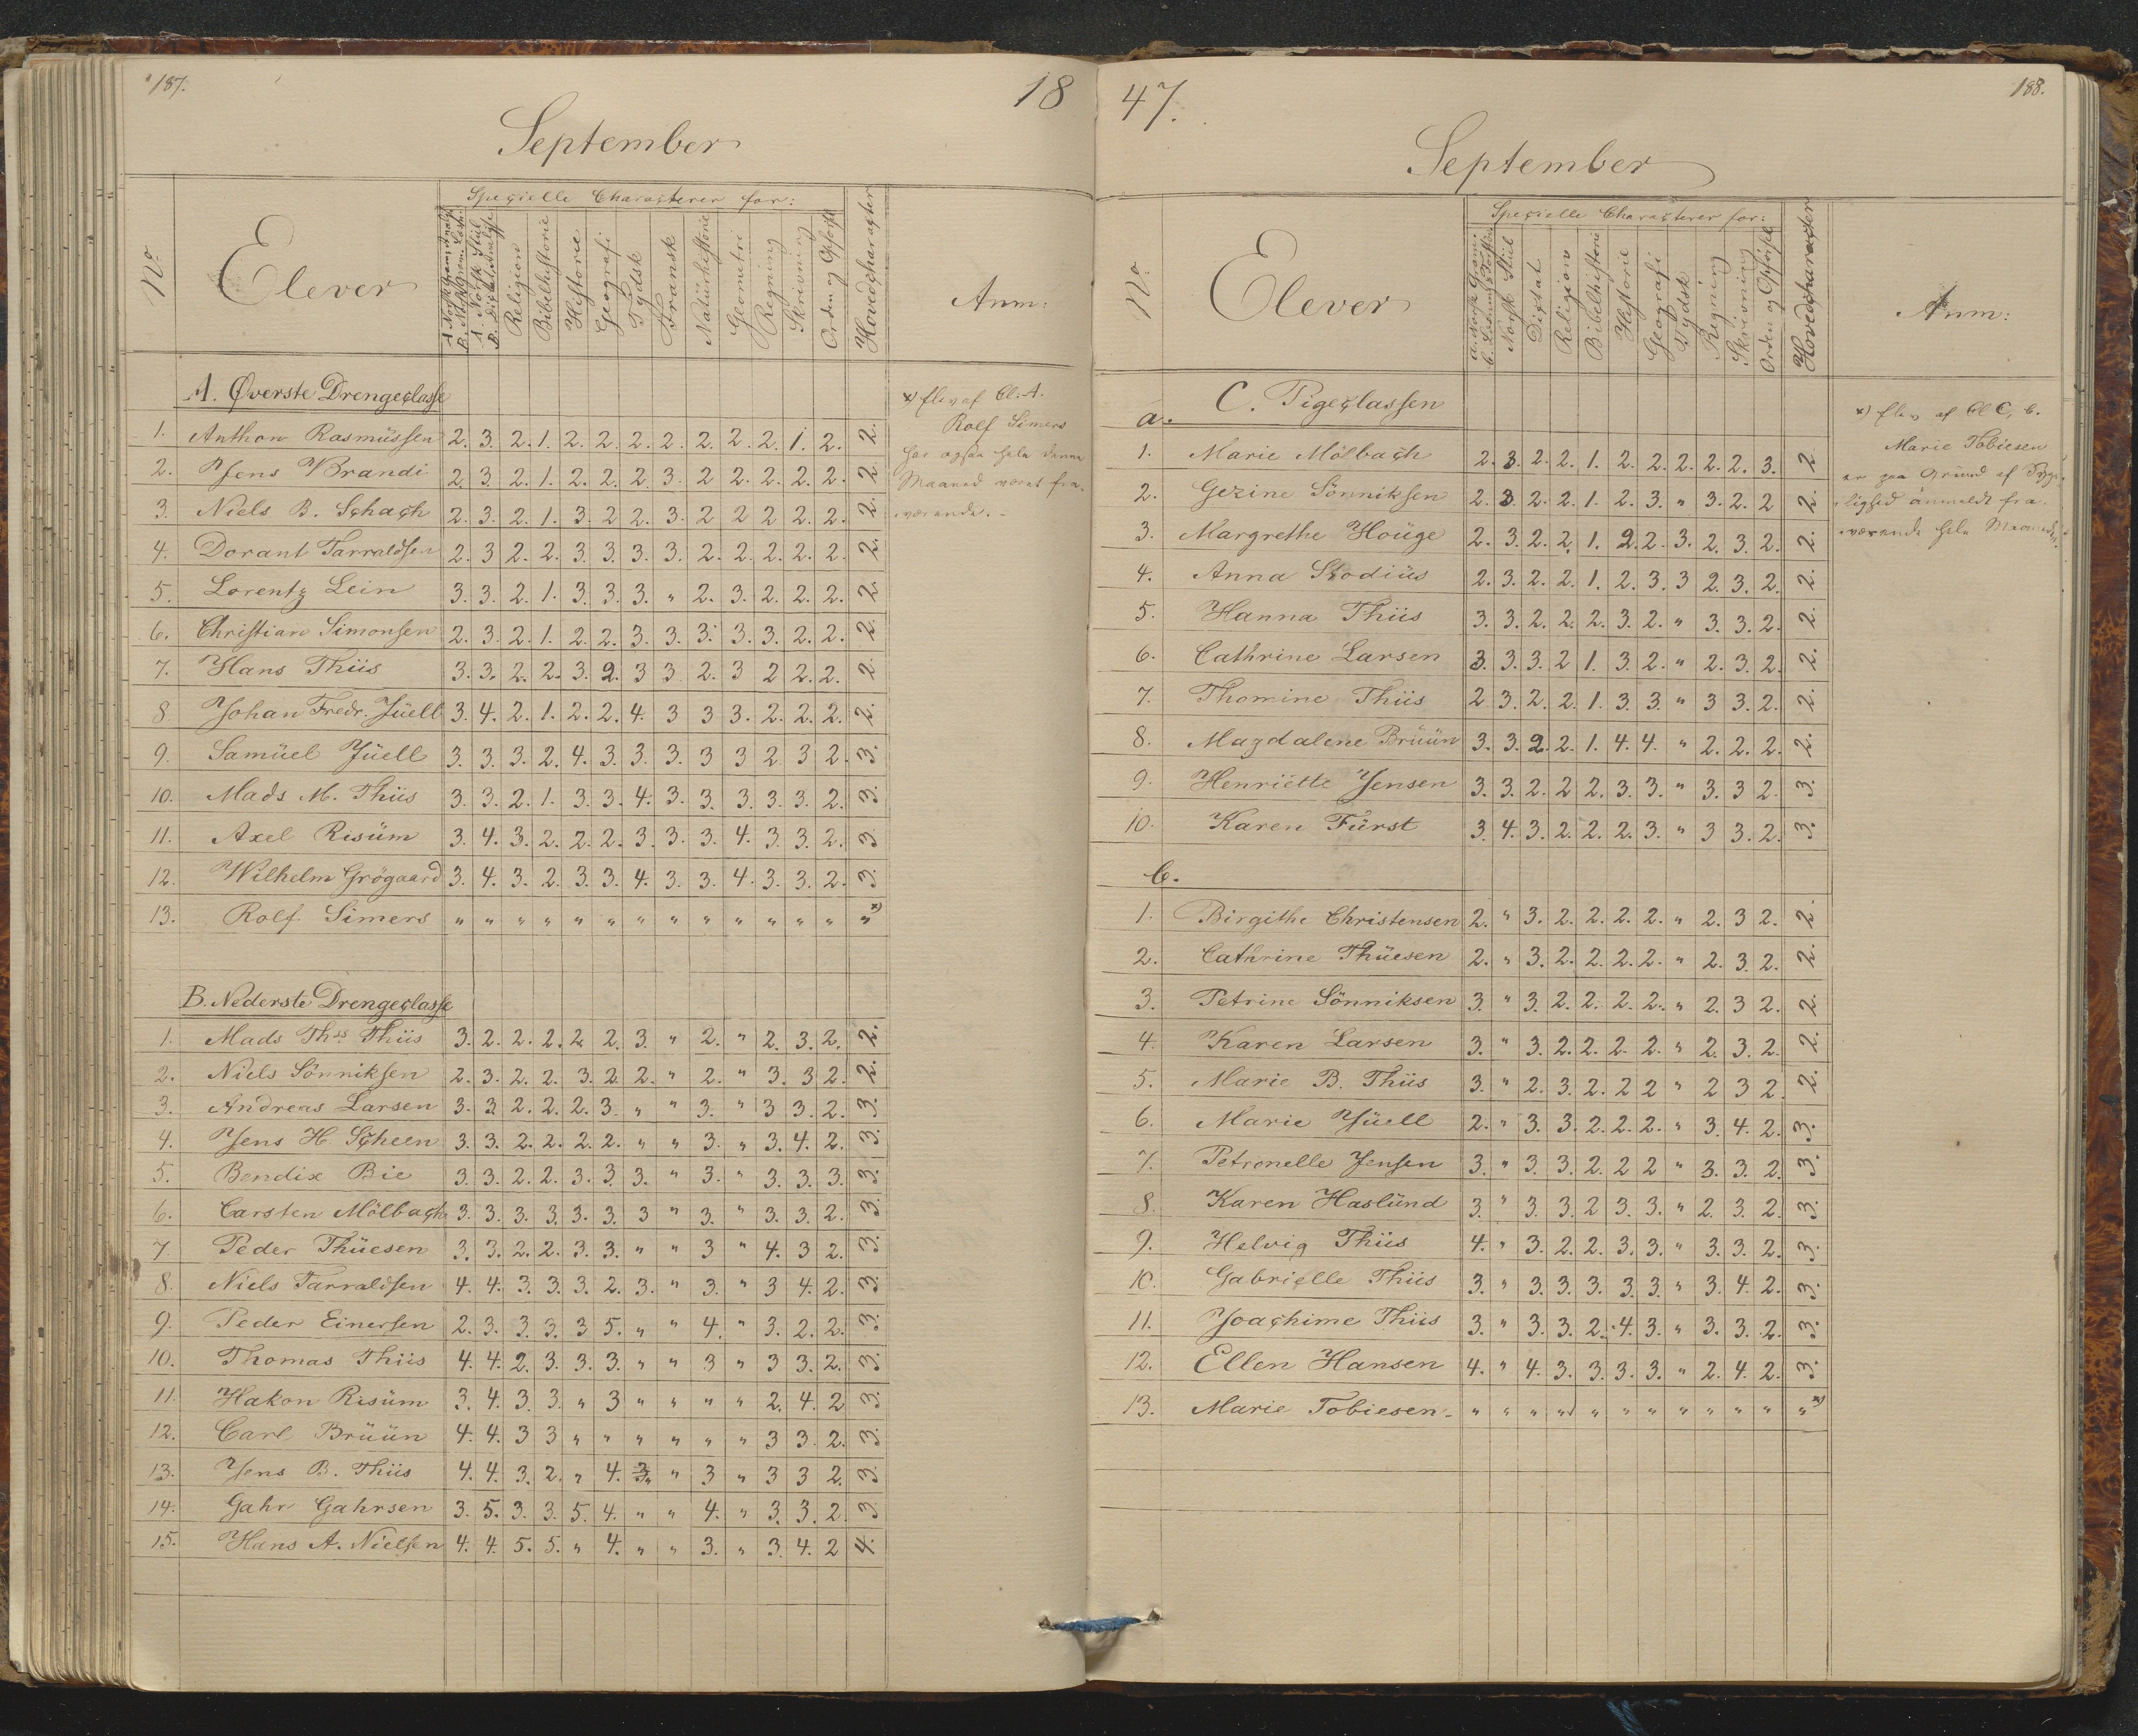 187.
18
September
No
Elever
Specielle Characterer for:
A. Norsk Gram. Analyse
B. Norsk Gram. Læsn.
A. Norsk Stiil
B. Dictat Analyse
Religion
Bibelhistorie
Historie
Geografi
Tydsk
Fransk
Natürhistorie
Geometri
Regning
Skrivning
Orden og Opførsel
Hovedcharacter
Anm:
A. Øverste Drengeclasse
1. Anthon Rasmüssen 2. 3. 2. 1. 2. 2. 2. 2. 2. 2. 2. 1. 2. 2.
2. Jens Brandi 2. 3. 2. 1. 2. 2. 2. 3. 2 2. 2. 2. 2. 2.
3. Niels B. Schach 2. 3. 2. 1. 3. 2 2. 3. 2 2 2 2. 2. 2.
4. Dorant Tarraldsen 2. 3 2. 2. 3. 3. 3. 3. 2. 2. 2. 2. 2. 2.
5. Lorentz Lein 3. 3. 2. 1. 3. 3. 3. " 2. 3. 2. 2. 2. 2.
6. Christian Simonsen 2. 3. 2. 1. 2. 2. 3. 3. 3. 3. 3. 2. 2. 2.
7. Hans Thiis 3. 3. 2. 2. 3. 2. 3 3 2. 3 2 2. 2. 2.
8. Johan Fredr. Jüell 3. 4. 2. 1. 2. 2. 4. 3 3 3. 2. 2. 2. 2.
9. Samüel Jüell 3. 3. 3. 2. 4. 3. 3. 3. 3 3 2 3 2. 3.
10. Mads M. Thiis 3. 3. 2. 1. 3. 3. 4. 3. 3. 3. 3. 3. 2. 3.
11. Axel Risüm 3. 4. 3. 2. 2. 2. 3. 3. 3. 4. 3. 3. 2. 3
12. Wilhelm Grögaard 3. 4. 3. 2. 3. 3. 4. 3. 3. 4. 3. 3. 2. 3.
13. Rolf Simers " " " " " " " " " " " " " "*)
*) Elev af Cl. A.
Rolf Simers
har ogsaa hele denne
Maaned været fra-
værende.-
B. Nederste Drengeclasse
1. Mads Ths Thiis 3. 2. 2. 2. 2. 2. 3. " 2. " 2. 3. 2. 2.
2. Niels Sönniksen 2. 3. 2. 2. 3. 2. 2. " 2. " 3. 3 2. 2.
3. Andreas Larsen 3. 3 2. 2. 2. 3. " " 3. " 3 3. 2. 3.
4. Jens H. Scheen 3. 3. 2. 2. 2. 2. " " 3. " 3. 4. 2. 3.
5. Bendix Bie 3. 3 2. 2. 3. 3. 3. " 3. " 3. 3. 3. 3.
6. Carsten Mölbach 3. 3. 3. 3. 3. 3. 3 " 3. " 3. 3. 2. 3.
7. Peder Thüesen 3. 3. 2. 2. 3. 3. " " 3 " 4. 3 2. 3.
8. Niels Tarraldsen 4. 4. 3. 3. 3 2. 3. " 3. " 3 4. 2. 3.
9. Peder Einersen 2. 3. 3. 3. 3 5. " " 4. " 3. 2. 2. 3.
10. Thomas Thiis 4. 4. 2. 3. 3. 3. " " 3 " 3 3. 2. 3.
11. Hakon Risüm 3. 4. 3. 3. " 3 " " " " 2. 4. 2 3.
12. Carl Brüün 4. 4. 3 3 " " " " " " 3 3. 2. 3.
13. Jens B. Thiis 4. 4. 3. 2. " 4. " " 3 " 3 3 2. 3.
14. Gahr Gahrsen 3. 5. 3. 3. 5. 4. " " 4. " 3. 3. 2. 3
15. Hans A. Nielsen 4. 4 5. 5. " 4. " " 3. " 3. 4. 2 4.
47.
188.
September
No
Elever
Specielle Characterer for:
a. Norsk Gram.
Norsk Stiil
Dictat
Religion
Bibelhistorie
Historie
Geografi
Tydsk
Regning
Skrivning
Orden og Opførsel
Hovedcharacter
Anm:
C. Pigeclassen
a.
1. Marie Mölbach 2. 3. 2. 2. 1. 2. 2. 2. 2. 2. 3. 2
2. Gezine Sönniksen 2. 3 2. 2. 1. 2. 3. " 3. 2. 2 2.
3. Margrethe Houge 2. 3. 2. 2. 1. 2. 2. 3. 2. 3. 2. 2.
4. Anna Stodiüs 2. 3. 2. 2. 1. 2. 3. 3 2. 3. 2. 2.
5. Hanna Thiis 3. 3. 2. 2. 2. 3. 2. " 3. 3. 2. 2.
6. Cathrine Larsen 3. 3. 3. 2 1. 3. 2. " 2. 3. 2. 2.
7. Thomine Thiis 2 3. 2. 2. 1. 3. 3. " 3 3. 2. 2.
8. Magdalene Brüün 3. 3. 2. 2. 1. 4. 4. " 2. 2. 2. 2.
9. Henriette Jensen 3. 3. 2. 2 2. 3. 3. " 3. 3 2. 3.
10. Karen Fürst 3. 4. 3. 2. 2. 2. 3. " 3 3. 2. 3.
*) Elev af Cl C, b.
Marie Tobiesen
er paa Grund af Syge-
lighed anmeldt fra-
værende hele Maaneden.
b.
1. Birgithe Christensen 2. " 3. 2. 2. 2. 2. " 2. 3 2. 2.
2. Cathrine Thüesen 2. " 3. 2. 2. 2. 2. " 2. 3. 2. 2.
3. Petrine Sönniksen 3. " 3. 2. 2. 2. 2. " 2. 3 2. 2.
4. Karen Larsen 3. " 3. 2. 2. 2. 2. " 2. 3. 2. 2.
5. Marie B. Thiis 3. " 2. 3. 2. 2 2 " 2 3 2. 2.
6. Marie Jüell 2. " 3. 3. 2. 2. 2. " 3. 4. 2. 3.
7. Petronelle Jensen 3. " 3. 3. 2. 2 2 " 3. 3. 2. 3.
8. Karen Haslünd 3. " 3. 3. 2 3. 3. " 2. 3. 2. 3.
9. Helvig Thiis 4. " 3. 2. 2. 3. 3. " 3. 3. 2. 3.
10. Gabrielle Thiis 3. " 3. 3. 3. 3. 3. " 3. 4. 2. 3.
11. Joachime Thiis 3. " 3. 3. 2. 4. 3. " 3. 3. 2. 3.
12. Ellen Hansen 4. " 4. 3. 3. 3. 3. " 2. 4. 2. 3.
13. Marie Tobiesen- " " " " " " " " " " " "*)